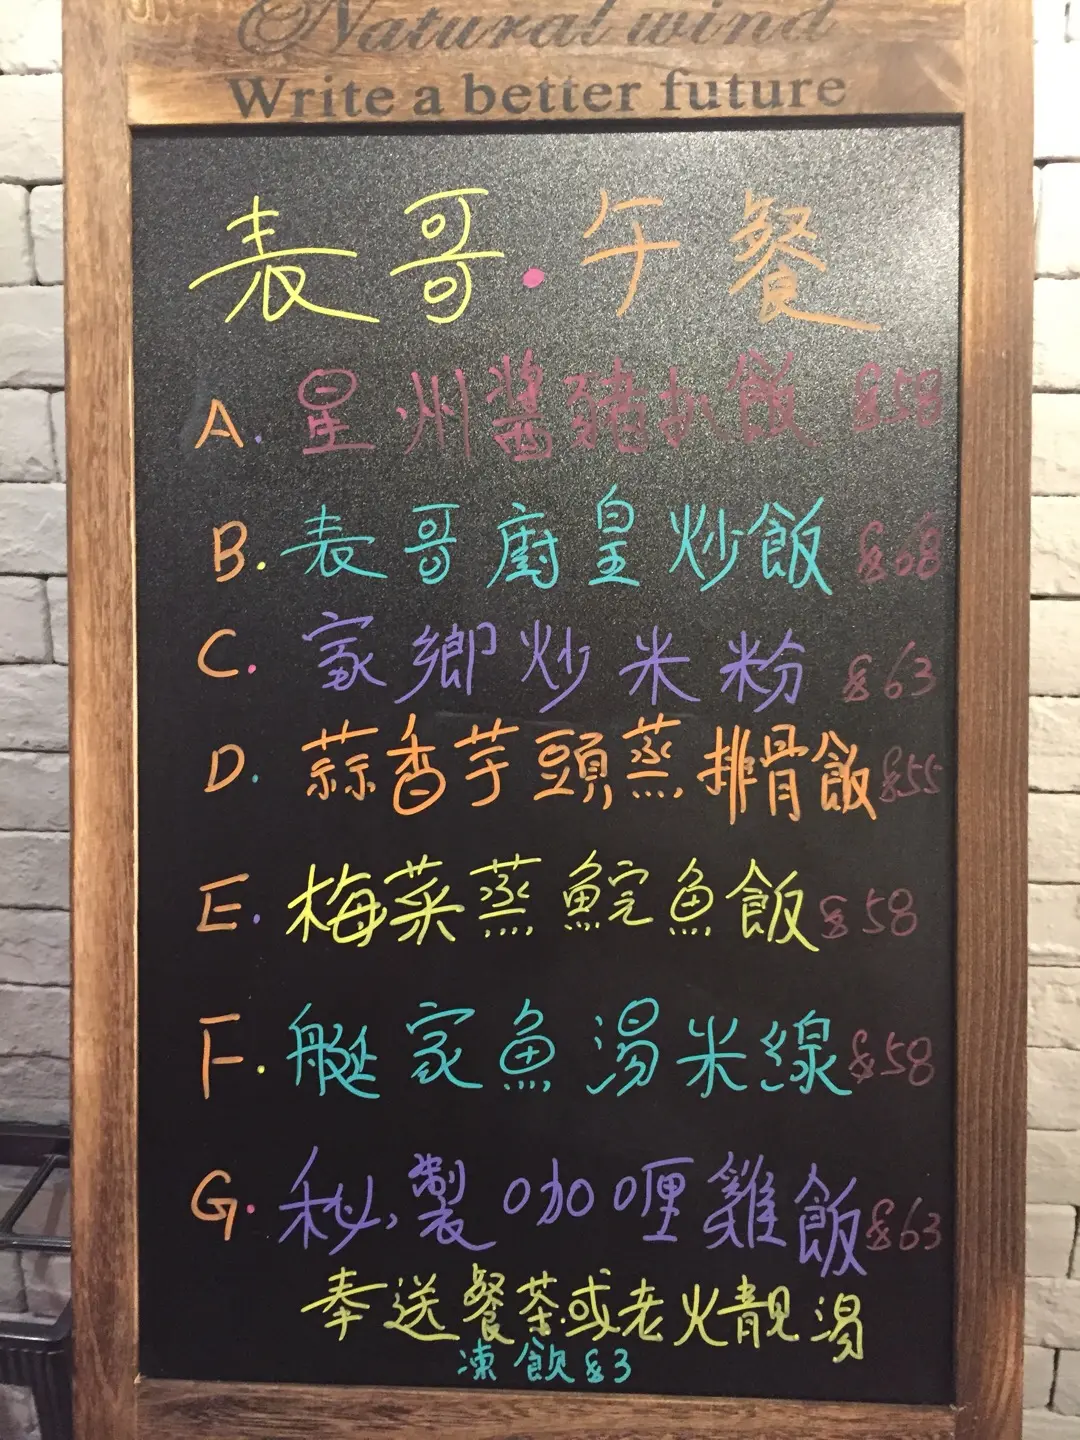 Natural wind
Write a better future
表哥・午餐
A. 星洲醬豬扒飯 $58
B. 表哥廚皇炒飯 $68
C. 家鄉炒米粉 $63
D. 蒜香芋頭蒸排骨飯 $55
E. 梅菜蒸鯇魚飯 $58
F. 艇家魚湯米線 $58
G. 秘製咖喱雞飯 $63
奉送餐茶或老火靚湯
凍飲$3